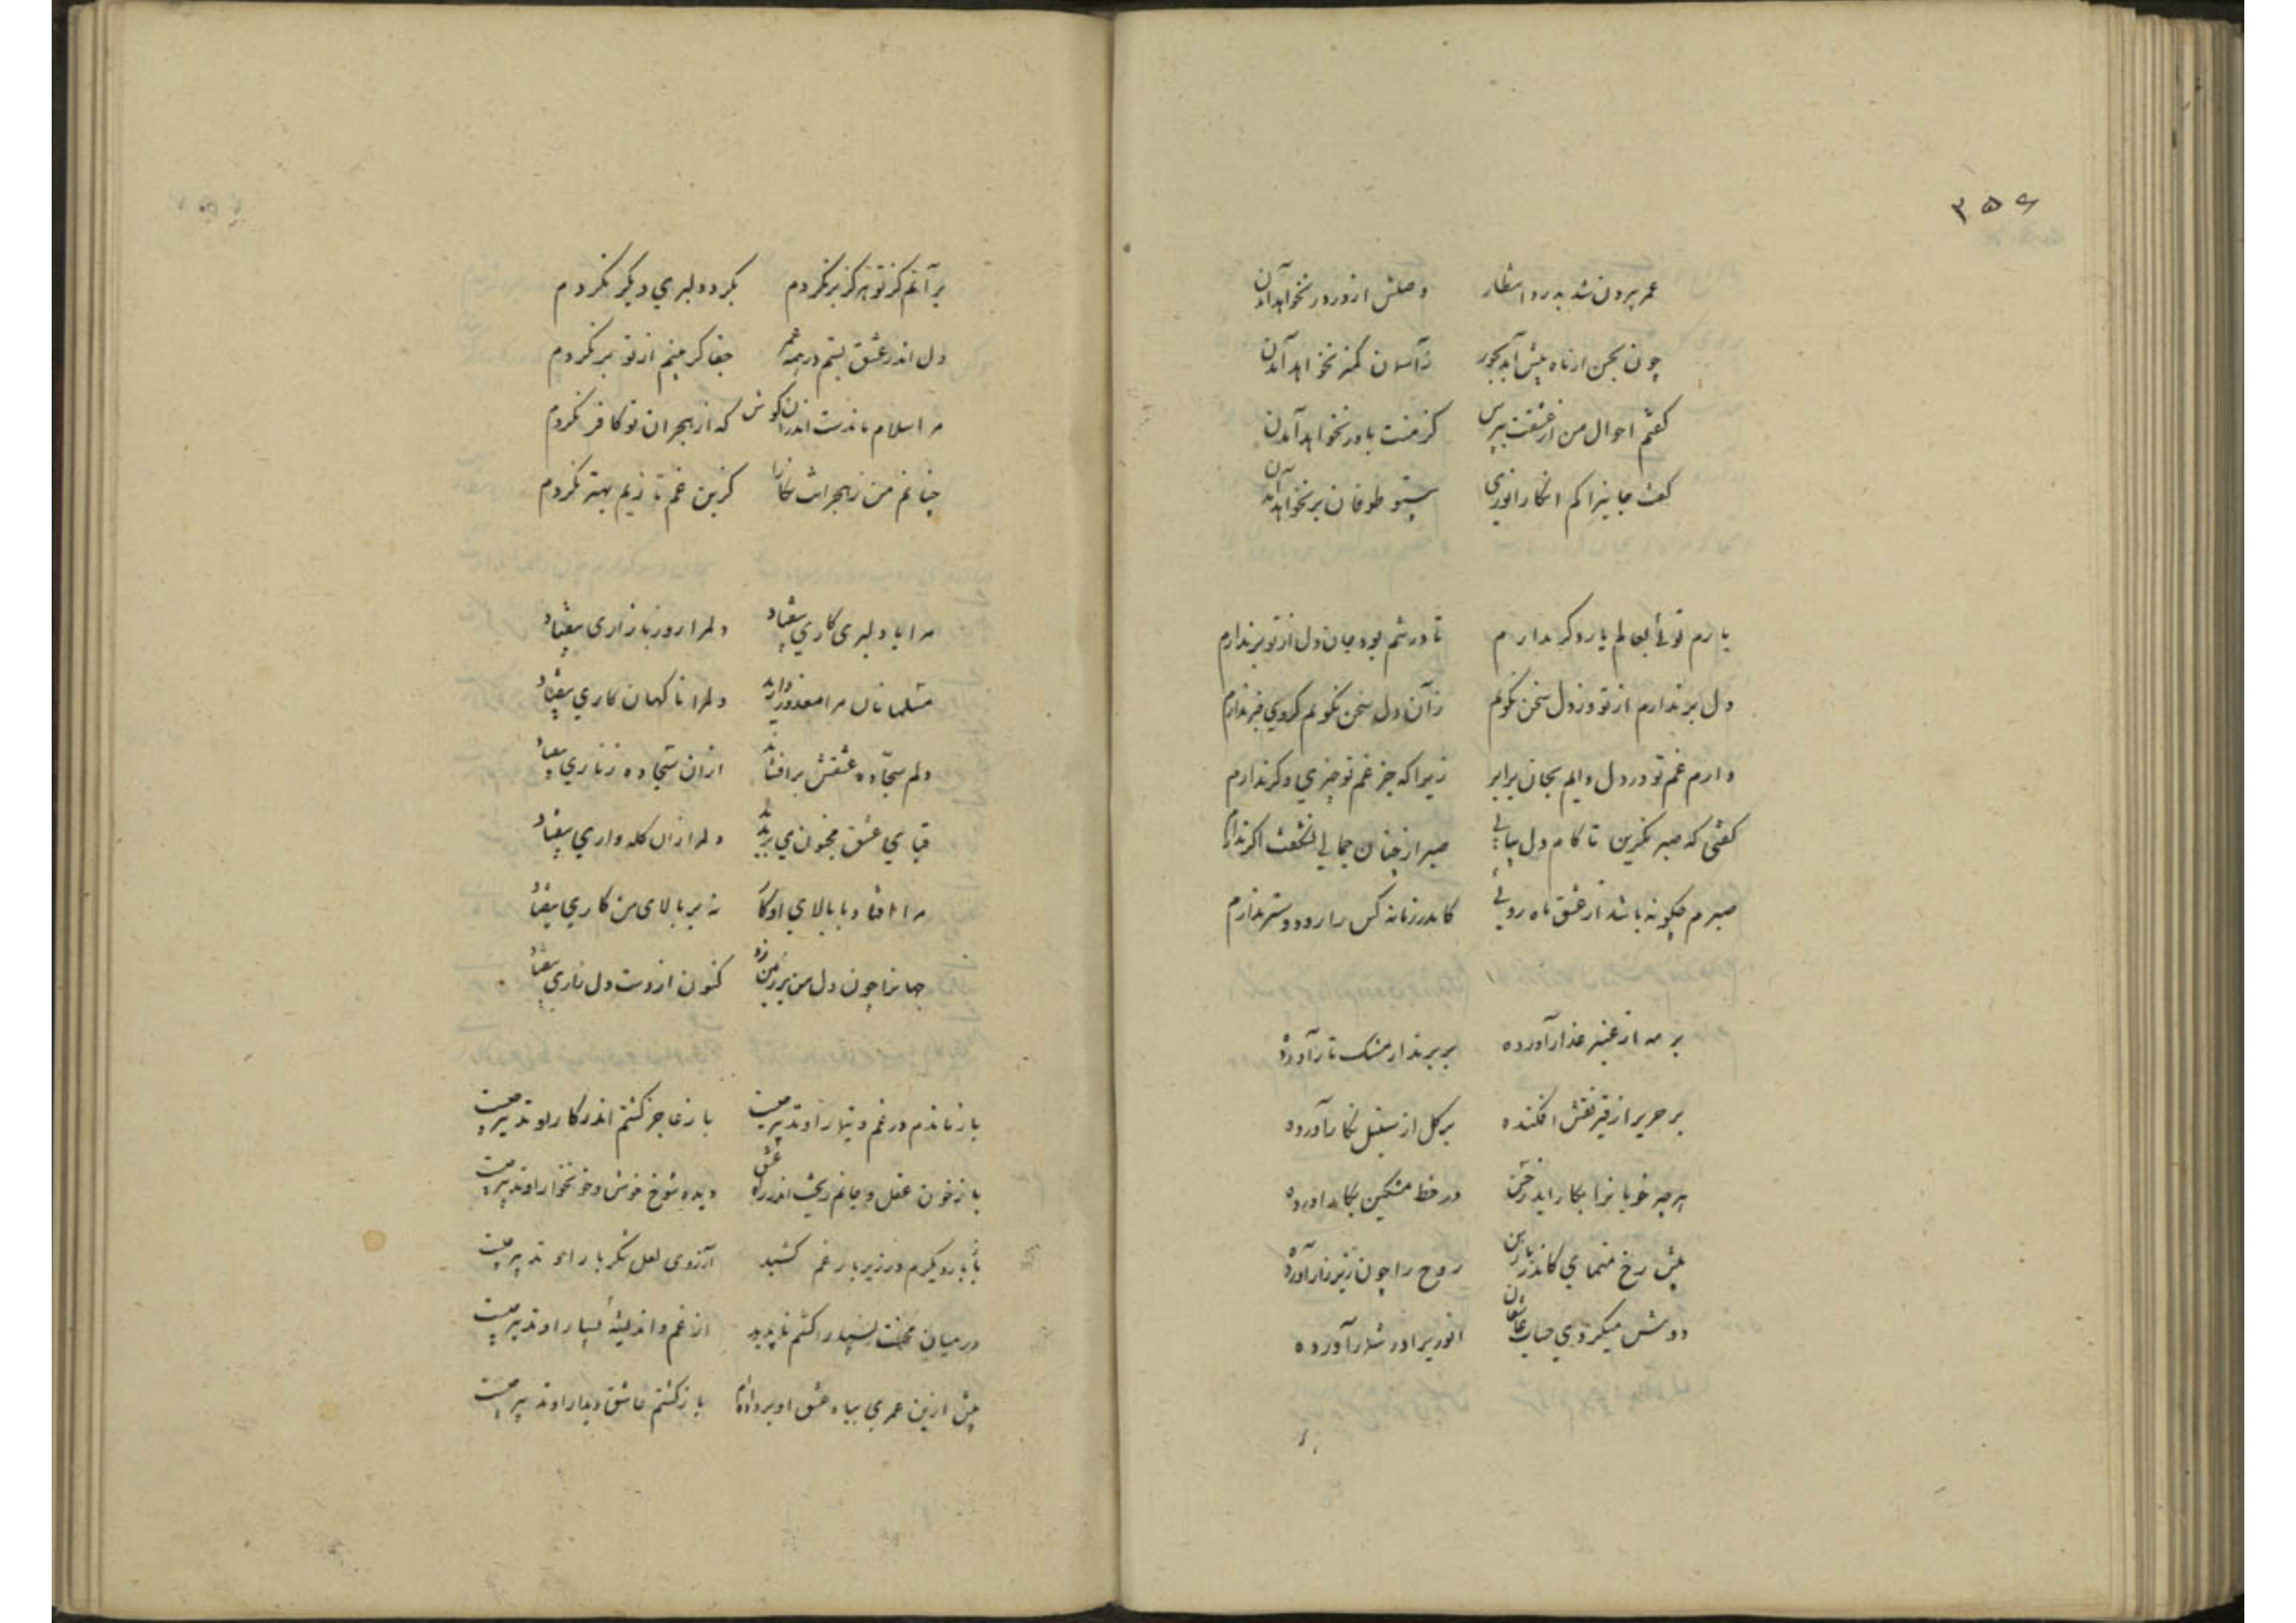 ۳۵۶
عمر بیرون شد بدرد انتظار وصلش از در در نخواهد آمدن
چون بحسن از ماه بیش آید بجور ز آسمان کمتر نخواهد آمدن
کفتم احوال من از عشقت بپرس کز منت باور نخواهد آمدن
کفت جایی را کم انکار انوری بسته طوفان بر نخواهد آمدن
یارم توئی بعالم یار دکر ندارم تا در تنم بود جان دل از تو بر ندارم
دل بر ندارم از تو وز دل سخن نکویم زان دل سخن نکویم کز وی خبر ندارم
دارم غم تو در دل دایم بجان برابر زیرا که جز غم تو چیزی دکر ندارم
کفتی که صبر بکزین تا کام دل بیابی صبر از چنان جمالی نشکفت اکر ندارم
صبرم چکونه باشد از عشق ماه رویی کاندر زمانه کس را زو دوستر ندارم
بر مه از عنبر عذار آورده بر پرند از مشک تار آورده
بر حریر از قیر نقش افکنده بر کل از سنبل نکار آورده
هر چه خوبانرا بکار اید ز حسن در خط مشکین بکار آورده
پیش رخ منمای کاندر کار من روح را چون زیر بار آورده
دوش میکردی حساب عاشقان انوری را در شمار آورده
بر آنم کز تو هرکز بر نکردم بکرد دلبری دیکر نکردم
دل اندر عشق بستم در همه عمر جفا کر بینم از تو بر نکردم
مرا اسلام ماندست اندران کوش که از هجران تو کافر نکردم
چنانم من ز هجرانت نکارا کزین غم تا زیم بهتر نکردم
مرا با دلبری کاری بیفتاد دلم را روز بازاری بیفتاد
مسلمانان مرا معذور دارید دلم را ناکهان کاری بیفتاد
دلم سجاده عشقش برافشاند ازان سجاده زناری بیفتاد
قبای عشق مجنون می بریدند دلم را زان کله واری بیفتاد
مرا افتاد با بالای او کار نه بر بالای من کاری بیفتاد
جهانرا چون دل من بر زمین زد کنون از دست دل باری بیفتاد
باز ماندم در غم و تیمار او تدبیر چیست باز عاجز کشتم اندر کار او تدبیر چیست
باز خون عقل و جانم ریخت اندر عشق دیده شوخ خوش خونخوار او تدبیر چیست
بار دیکرم در زیر بار غم کشید آرزوی لعل شکر بار او تدبیر چیست
در میان محنت بسیار کشتم ناپدید از غم و اندیشه بسیار او تدبیر چیست
پیش ازین عمری بباد عشق او بر داده‌ام باز کشتم عاشق دیدار او تدبیر چیست